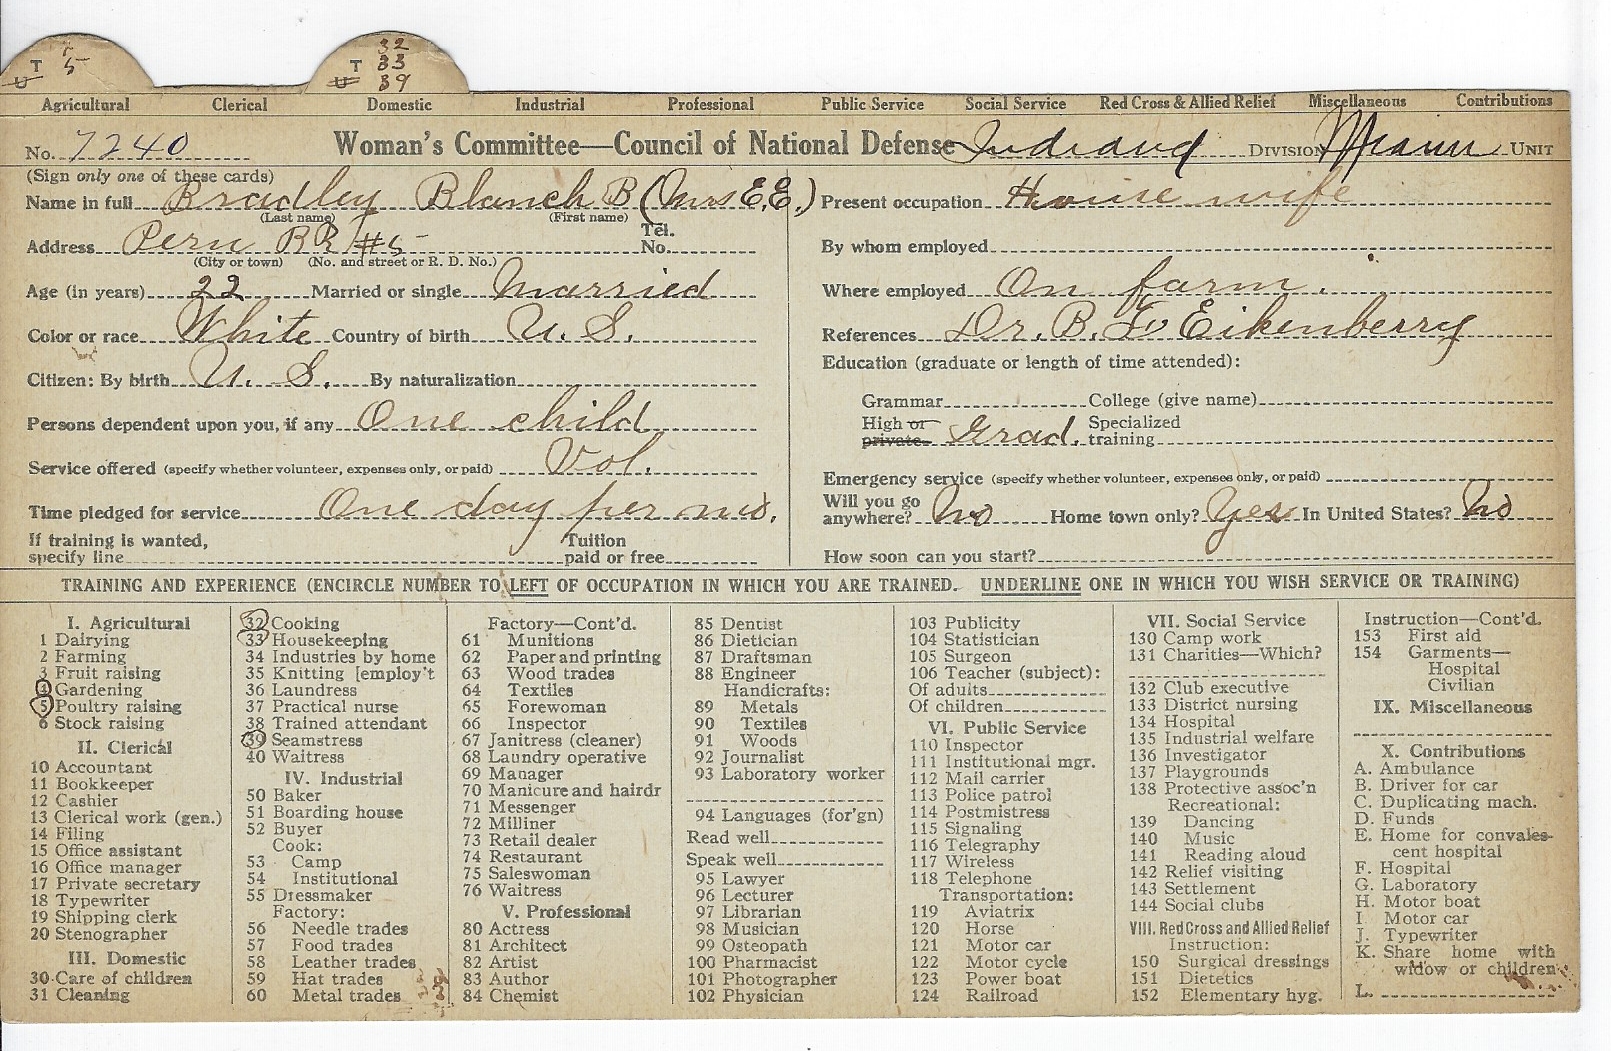 T 5
U
T 32
33
U 39
Agricultural Clerical Domestic Industrial Professional Public Service Social Service Red Cross & Allied Relief Miscellaneous Contributions
No. 7240 Woman's Committee—Council of National Defense Indiana DIVISION Miami UNIT
(Sign only one of these cards)
Name in full Bradley Blanch B (Mrs E.E.) Present occupation House wife
(Last name) (First name)
Address Peru RR #5 Tel. No. By whom employed
(City or town) (No. and street or R. D. No.)
Age (in years) 22 Married or single Married Where employed On farm.
Color or race White Country of birth U. S. References Dr. B. F. Eikenberry
Education (graduate or length of time attended):
Citizen: By birth U. S. By naturalization
Grammar College (give name)
Persons dependent upon you, if any One child
High or private Grad. Specialized training
Service offered (specify whether volunteer, expenses only, or paid) Vol.
Emergency service (specify whether volunteer, expenses only, or paid)
Time pledged for service One day per mo. Will you go anywhere? No Home town only? Yes In United States? No
If training is wanted, specify line Tuition paid or free How soon can you start?
TRAINING AND EXPERIENCE (ENCIRCLE NUMBER TO LEFT OF OCCUPATION IN WHICH YOU ARE TRAINED. UNDERLINE ONE IN WHICH YOU WISH SERVICE OR TRAINING)
I. Agricultural
1 Dairying
2 Farming
3 Fruit raising
4 Gardening
5 Poultry raising
6 Stock raising
II. Clerical
10 Accountant
11 Bookkeeper
12 Cashier
13 Clerical work (gen.)
14 Filing
15 Office assistant
16 Office manager
17 Private secretary
18 Typewriter
19 Shipping clerk
20 Stenographer
III. Domestic
30 Care of children
31 Cleaning
32 Cooking
33 Housekeeping
34 Industries by home
35 Knitting [employ't
36 Laundress
37 Practical nurse
38 Trained attendant
39 Seamstress
40 Waitress
IV. Industrial
50 Baker
51 Boarding house
52 Buyer
Cook:
53 Camp
54 Institutional
55 Dressmaker
Factory:
56 Needle trades
57 Food trades
58 Leather trades
59 Hat trades
60 Metal trades
Factory—Cont'd.
61 Munitions
62 Paper and printing
63 Wood trades
64 Textiles
65 Forewoman
66 Inspector
67 Janitress (cleaner)
68 Laundry operative
69 Manager
70 Manicure and hairdr
71 Messenger
72 Milliner
73 Retail dealer
74 Restaurant
75 Saleswoman
76 Waitress
V. Professional
80 Actress
81 Architect
82 Artist
83 Author
84 Chemist
85 Dentist
86 Dietician
87 Draftsman
88 Engineer
Handicrafts:
89 Metals
90 Textiles
91 Woods
92 Journalist
93 Laboratory worker
94 Languages (for'gn)
Read well
Speak well
95 Lawyer
96 Lecturer
97 Librarian
98 Musician
99 Osteopath
100 Pharmacist
101 Photographer
102 Physician
103 Publicity
104 Statistician
105 Surgeon
106 Teacher (subject):
Of adults
Of children
VI. Public Service
110 Inspector
111 Institutional mgr.
112 Mail carrier
113 Police patrol
114 Postmistress
115 Signaling
116 Telegraphy
117 Wireless
118 Telephone
Transportation:
119 Aviatrix
120 Horse
121 Motor car
122 Motor cycle
123 Power boat
124 Railroad
VII. Social Service
130 Camp work
131 Charities—Which?
132 Club executive
133 District nursing
134 Hospital
135 Industrial welfare
136 Investigator
137 Playgrounds
138 Protective assoc'n
Recreational:
139 Dancing
140 Music
141 Reading aloud
142 Relief visiting
143 Settlement
144 Social clubs
VIII. Red Cross and Allied Relief
Instruction:
150 Surgical dressings
151 Dietetics
152 Elementary hyg.
Instruction—Cont'd.
153 First aid
154 Garments—
Hospital
Civilian
IX. Miscellaneous
X. Contributions
A. Ambulance
B. Driver for car
C. Duplicating mach.
D. Funds
E. Home for convales-
cent hospital
F. Hospital
G. Laboratory
H. Motor boat
I Motor car
J. Typewriter
K. Share home with
widow or children
L.